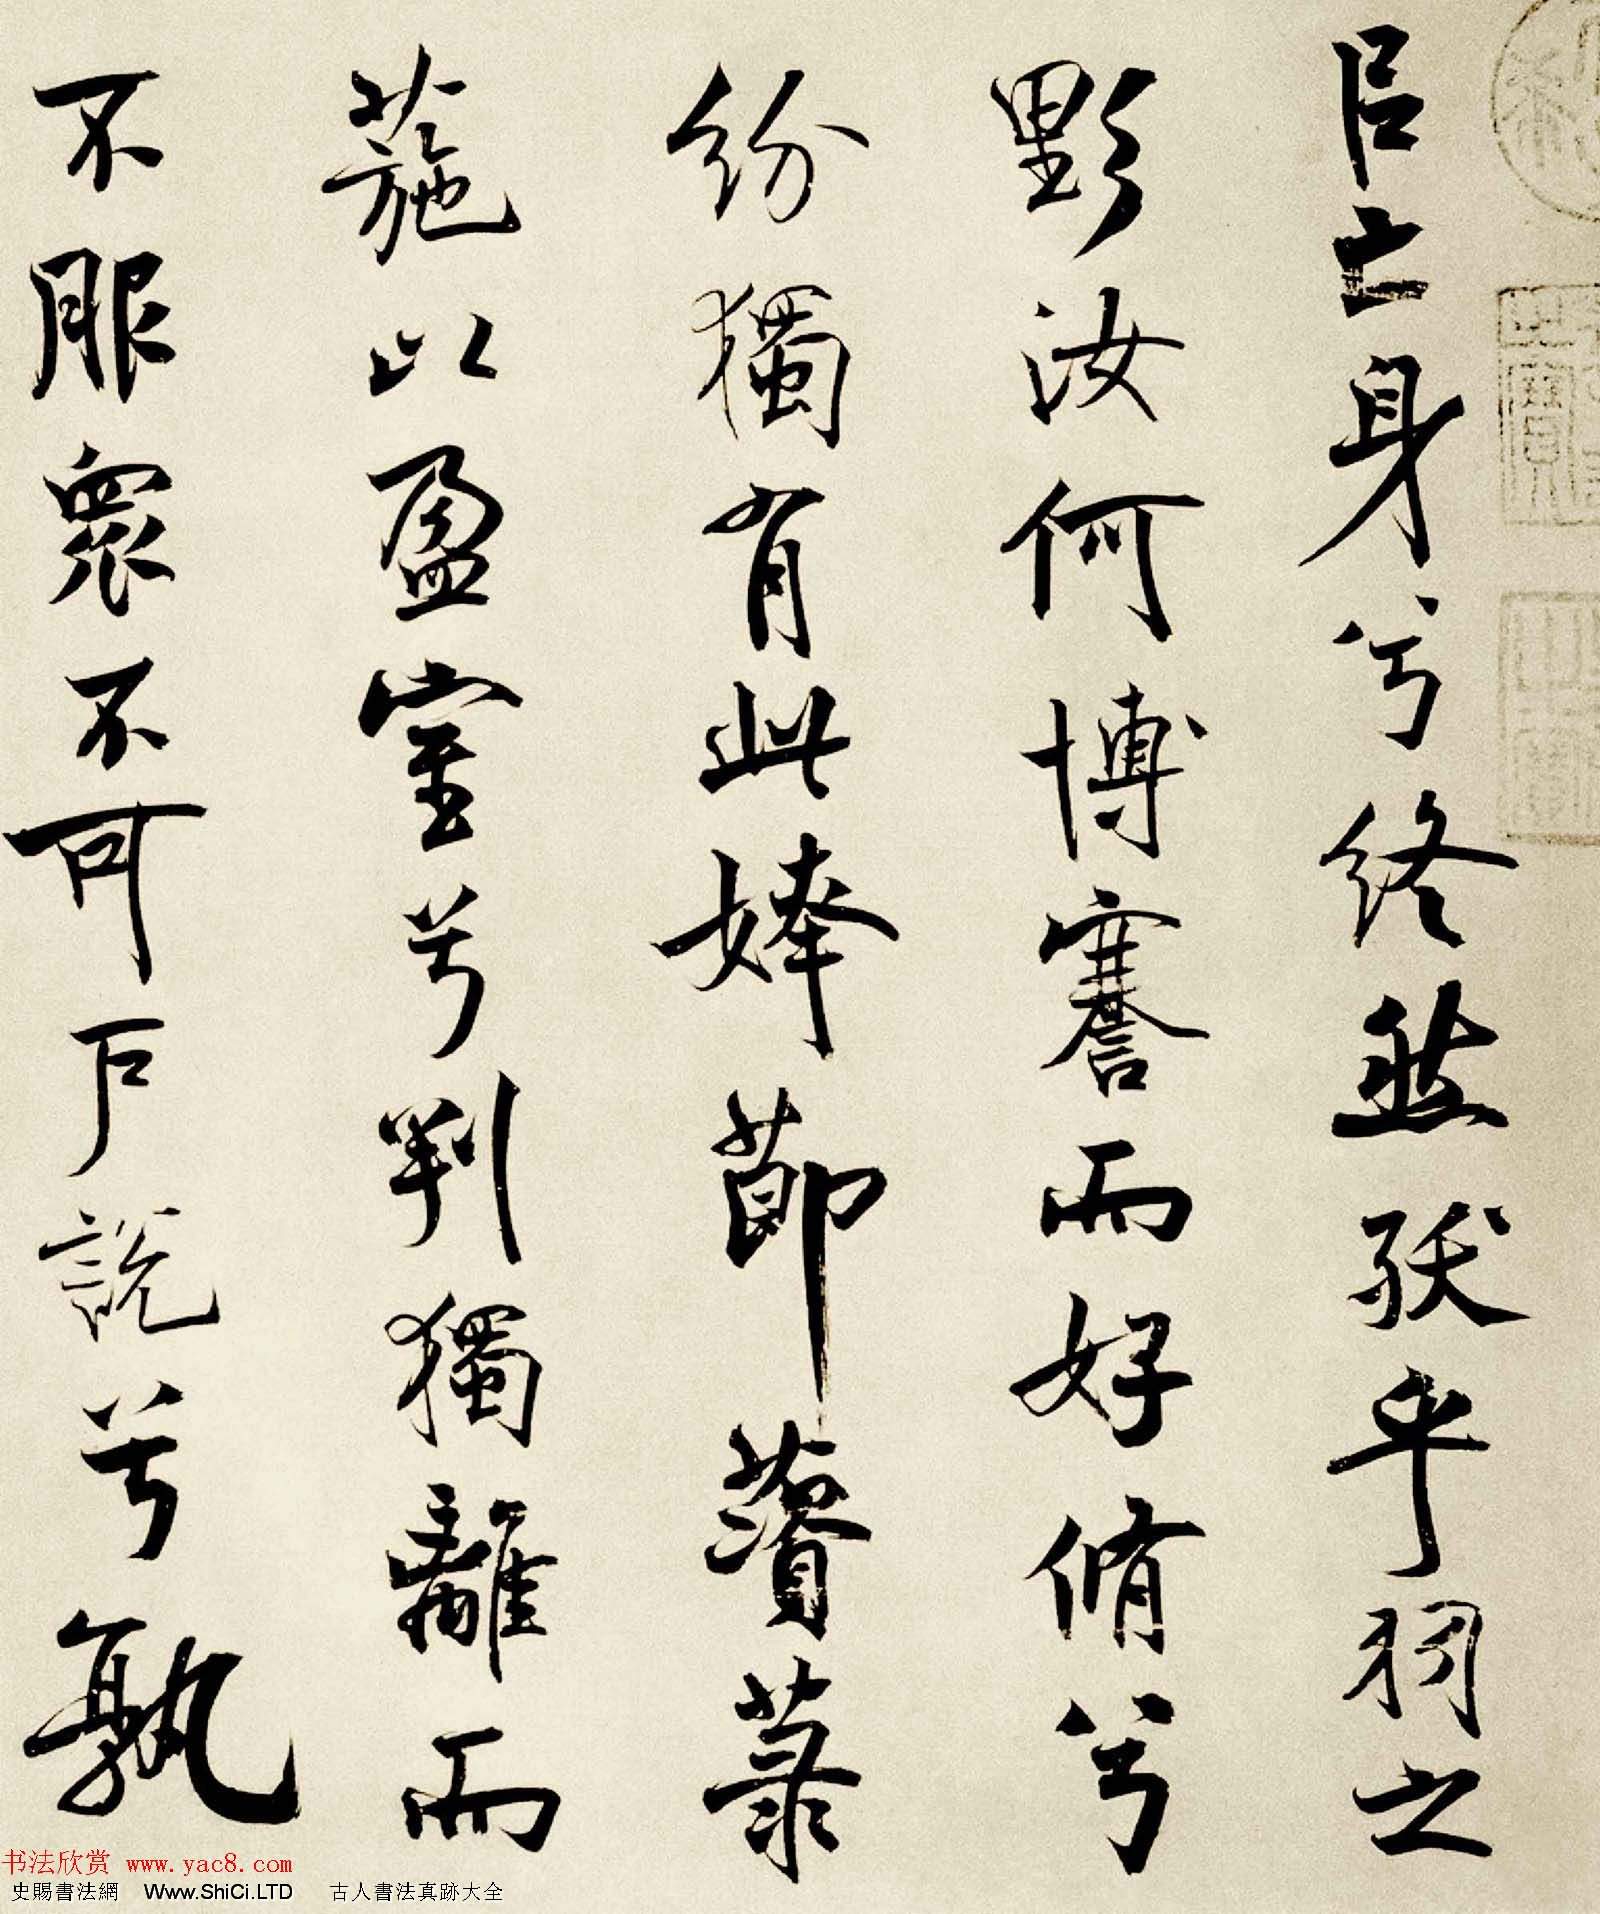 㠯亡身兮終然殀乎羽之
野汝何博謇而好脩兮
紛獨有此姱莭薋菉
葹以盈室兮判獨離而
不服眾不可戶說兮孰
书法欣赏 www.yac8.com
史賜書法網 Www.ShiCi.LTD 古人書法真跡大全